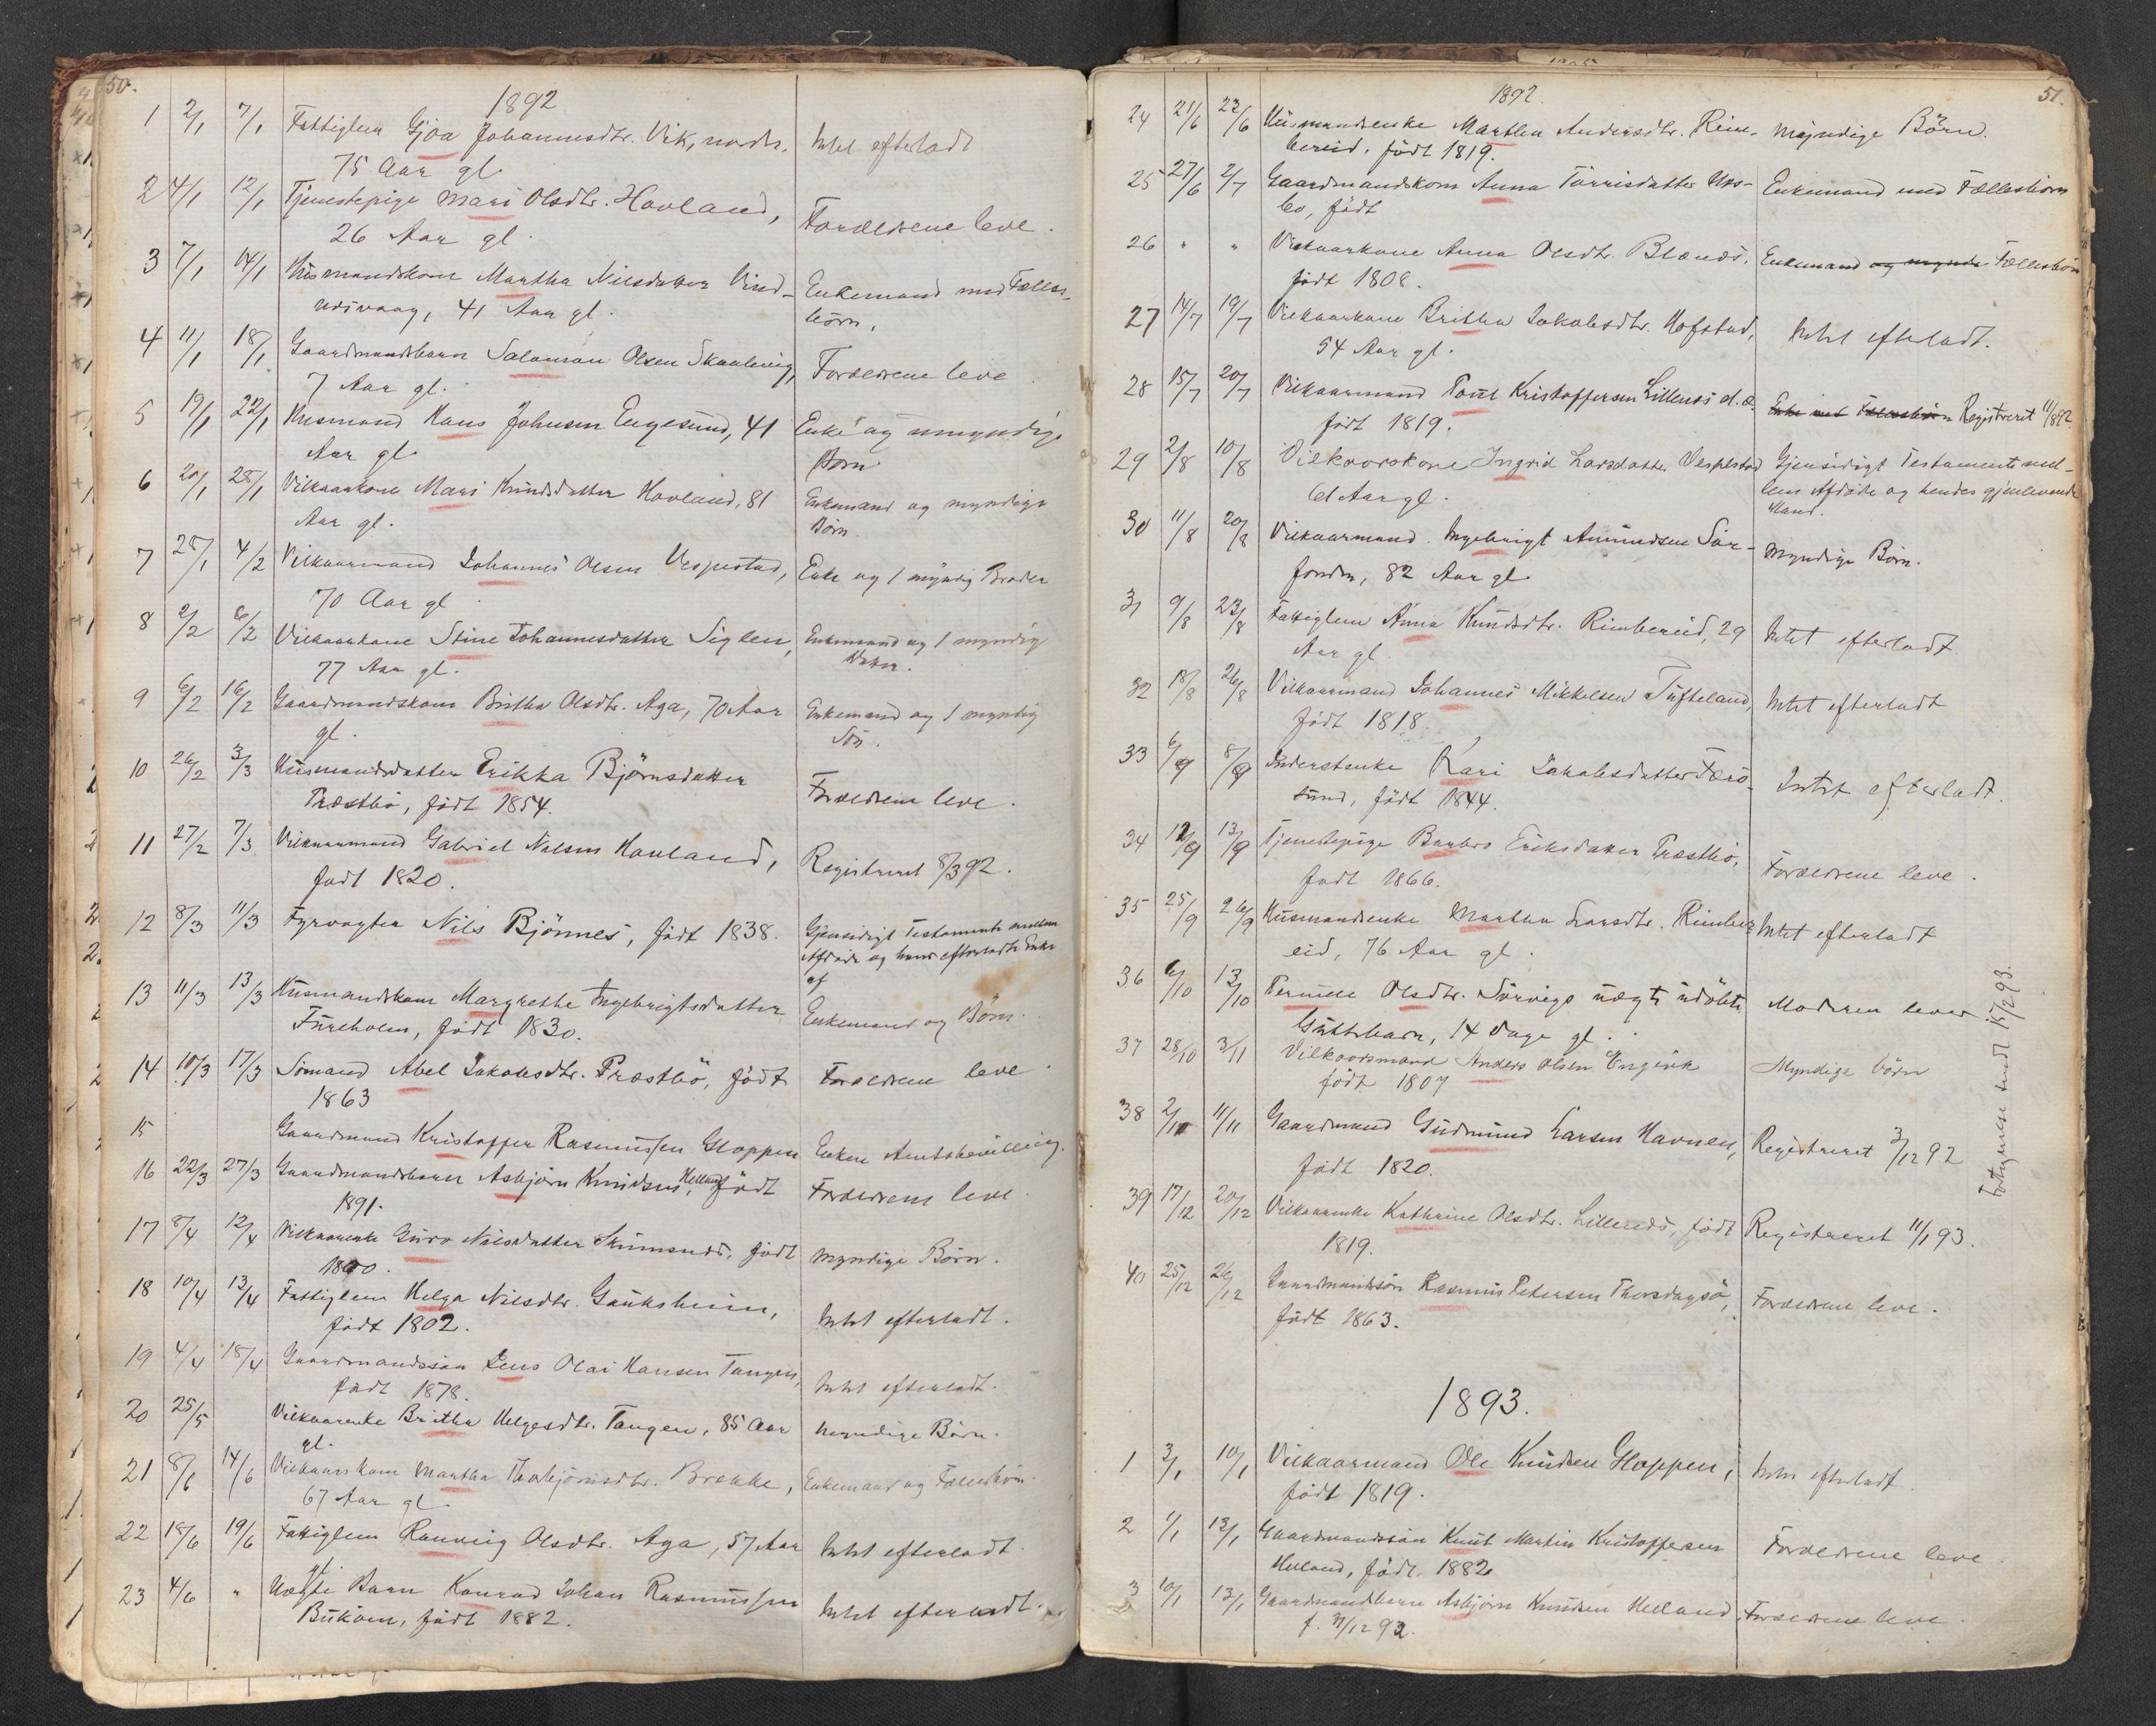 50.
1892
1 2/1 7/1 Fattiglem Gjoa Johannesdtr. Vik, nordr. Intet efterladt
75 Aar gl.
2 4/1 12/1 Tjenestepige Mari Olsdtr. Hovland, Forældrene leve.
26 Aar gl.
3 7/1 14/1 Husmandskone Martha Nilsdatter Vind- Enkemand med Fælles-
næsvaag, 41 Aar gl. børn.
4 11/1 18/1 Gaardmandsbarn Salomon Olsen Skaalevig, Forældrene leve
7 Aar gl.
5 19/1 22/1 Husmand Hans Johnsen Engesund, 41 Enke og umyndige
Aar gl. Børn
6 20/1 28/1 Vilkaarkone Mari Knudsdatter Hovland, 81 Enkemand og myndige
Aar gl. Børn.
7 28/1 4/2 Vilkaarmand Johannes Olsen Vespestad, Enke og 1 myndig Broder
70 Aar gl.
8 2/2 6/2 Vilkaarkone Stine Johannesdatter Siglen, Enkemand og 1 myndig
77 Aar gl. Datter.
9 6/2 16/2 Gaardmandskone Britha Olsdtr. Aga, 70 Aar Enkemand og 1 myndig
gl. Søn.
10 26/2 3/3 Husmandsdatter Erikka Bjørnsdatter Forældrene leve.
Præstbø, født 1854.
11 27/2 7/3 Vilkaarmand Gabriel Nilsen Hovland, Registreret 8/3 92.
født 1820.
12 8/3 11/3 Fyrvogter Nils Bjönnes, født 1838. Gjensidigt Testamente mellem
Afdøde og hans efterladte Enke
af
13 11/3 13/3 Husmandskone Margrethe Ingebrigtsdatter Enkemand og Børn.
Fureholm, født 1830.
14 10/3 17/3 Sömand Abel Jakobsdtr. Præstbö, født Forældrene leve.
1863
15 Gaardmand Kristoffer Rasmussen Gloppen Enken Amtsbevilling.
16 22/3 27/3 Gaardmandsbarn Asbjörn Knudsen Helland, født Forældrene leve.
1891.
17 8/4 12/4 Vilkaarenke Guro Nilsdatter Skimsnæs, født Myndige Børn.
1800.
18 10/4 13/4 Fattiglem Helga Nilsdtr. Gauksheim, Intet efterladt.
født 1802.
19 4/4 18/4 Gaardmandssøn Jens Olai Hansen Tangen, Intet efterladt.
født 1878.
20 25/5 Vilkaarenke Britha Helgesdtr. Tangen, 85 Aar Myndige Børn.
gl.
21 8/6 14/6 Vilkaarskone Martha Thorbjörnsdtr. Brekke, Enkemand og Fællesbørn.
67 Aar gl.
22 18/6 19/6 Fattiglem Ranveig Olsdtr. Aga, 57 Aar Intet efterladt.
gl.
23 4/6 " Uægte Barn Konrad Johan Rasmussen Intet efterladt.
Buköen, født 1882.
51.
1892.
24 21/6 23/6 Husmandsenke Martha Andersdtr. Rim- Myndige Børn.
bereid, født 1819.
25 27/6 2/7 Gaardmandskone Anna Tørrisdatter Urs- Enkemand med Fællesbørn
bø, født
26 " " Vilkaarkone Anna Olsdtr. Blænæs, Enkemand og myndi Fællesbørn
født 1808.
27 14/7 19/7 Vilkaarkone Britha Jakobsdtr. Hofstad, Intet efterladt.
54 Aar gl.
28 15/7 20/7 Vilkaarmand Poul Kristoffersen Lillenæs d. æ. Enke med Fællesbørn Registreret 11/8 92.
født 1819.
29 2/8 10/8 Vilkaarskone Ingrid Larsdatter Vespestad Gjensidigt Testamente mel-
61 Aar gl. lem Afdøde og hendes gjenlevende
Mand.
30 11/8 20/8 Vilkaarmand Ingebrigt Amundsen Sör- Myndige Børn.
fonden, 82 Aar gl.
31 9/8 23/8 Fattiglem Anna Knudsdtr. Rimbereid, 29 Intet efterladt
Aar gl.
32 18/8 26/8 Vilkaarmand Johannes Mikkelsen Tufteland, Intet efterladt
født 1818.
33 6/9 8/9 Inderstenke Kari Jakobsdatter Færö- Intet efterladt.
sund, født 1844.
34 12/9 13/9 Tjenestepige Barbro Eriksdatter Præstbö, Forældrene leve.
født 1866.
35 25/9 26/9 Husmandsenke Martha Larsdtr. Rimber- Intet efterladt
eid, 76 Aar gl.
36 6/10 13/10 Pernille Olsdtr. Sörvigs uægte udöbte Moderen lever
Guttebarn, 14 Dage gl.
37 28/10 3/11 Vilkaarsmand Anders Olsen Engevik Myndige börn
født 1807
38 2/11 11/11 Gaardmand Gudmund Larsen Havnen, Registreret 3/12 92
født 1820.
39 17/12 20/12 Vilkaarenke Kathrine Olsdtr. Lillenæs, født Registreret 11/1 93.
1819.
40 25/12 26/12 Gaardmandssøn Rasmus Petersen Thorsdagsö, Forældrene leve.
født 1863.
1893.
1 3/1 10/1 Vilkaarmand Ole Knudsen Gloppen, Intet efterladt
født 1819.
2 1/1 13/1 Gaardmandssøn Knut Martin Kristoffersen Forældrene leve.
Helland, født 1882
3 10/1 13/1 Gaardmandsbarn Asbjörn Knudsen Helland, Forældrene leve.
f. 31/12 92.